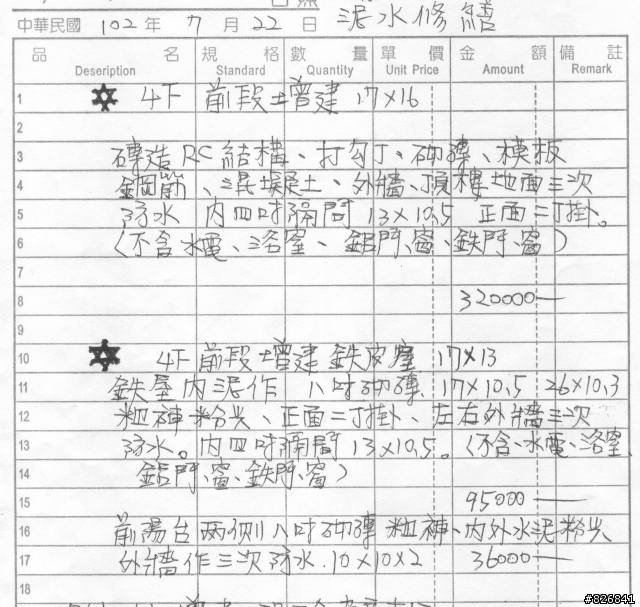 中華民國 102 年 7 月 22 日 泥水修繕
品名 規格 數量 單價 金額 備註
Deseription Standard Quantity Unit Price Amount Remark
1 4F 前段增建 17×16
2
3 磚造RC結構、打勾丁、砌磚、模板
4 鋼筋、混凝土、外牆、頂樓地面三次
5 防水 內四吋隔間 13×10.5 正面二丁掛。
6 (不含水電、浴室、鋁門、窗、鉄門、窗)
7
8 320000—
9
10 4F 前段增建 鉄皮屋 17×13
11 鉄屋內泥作 八吋砌磚 17×10.5 26×10.3
12 粗神粉光、正面二丁掛、左右外牆三次
13 防水。內四吋隔間 13×10.5。(不含、水電、浴室、
14 鋁門、窗、鉄門、窗)
15 95000—
16 前陽台兩側八吋砌磚 粗神、內外水泥粉光
17 外牆作三次防水.10×10×2 36000—
18
#826841